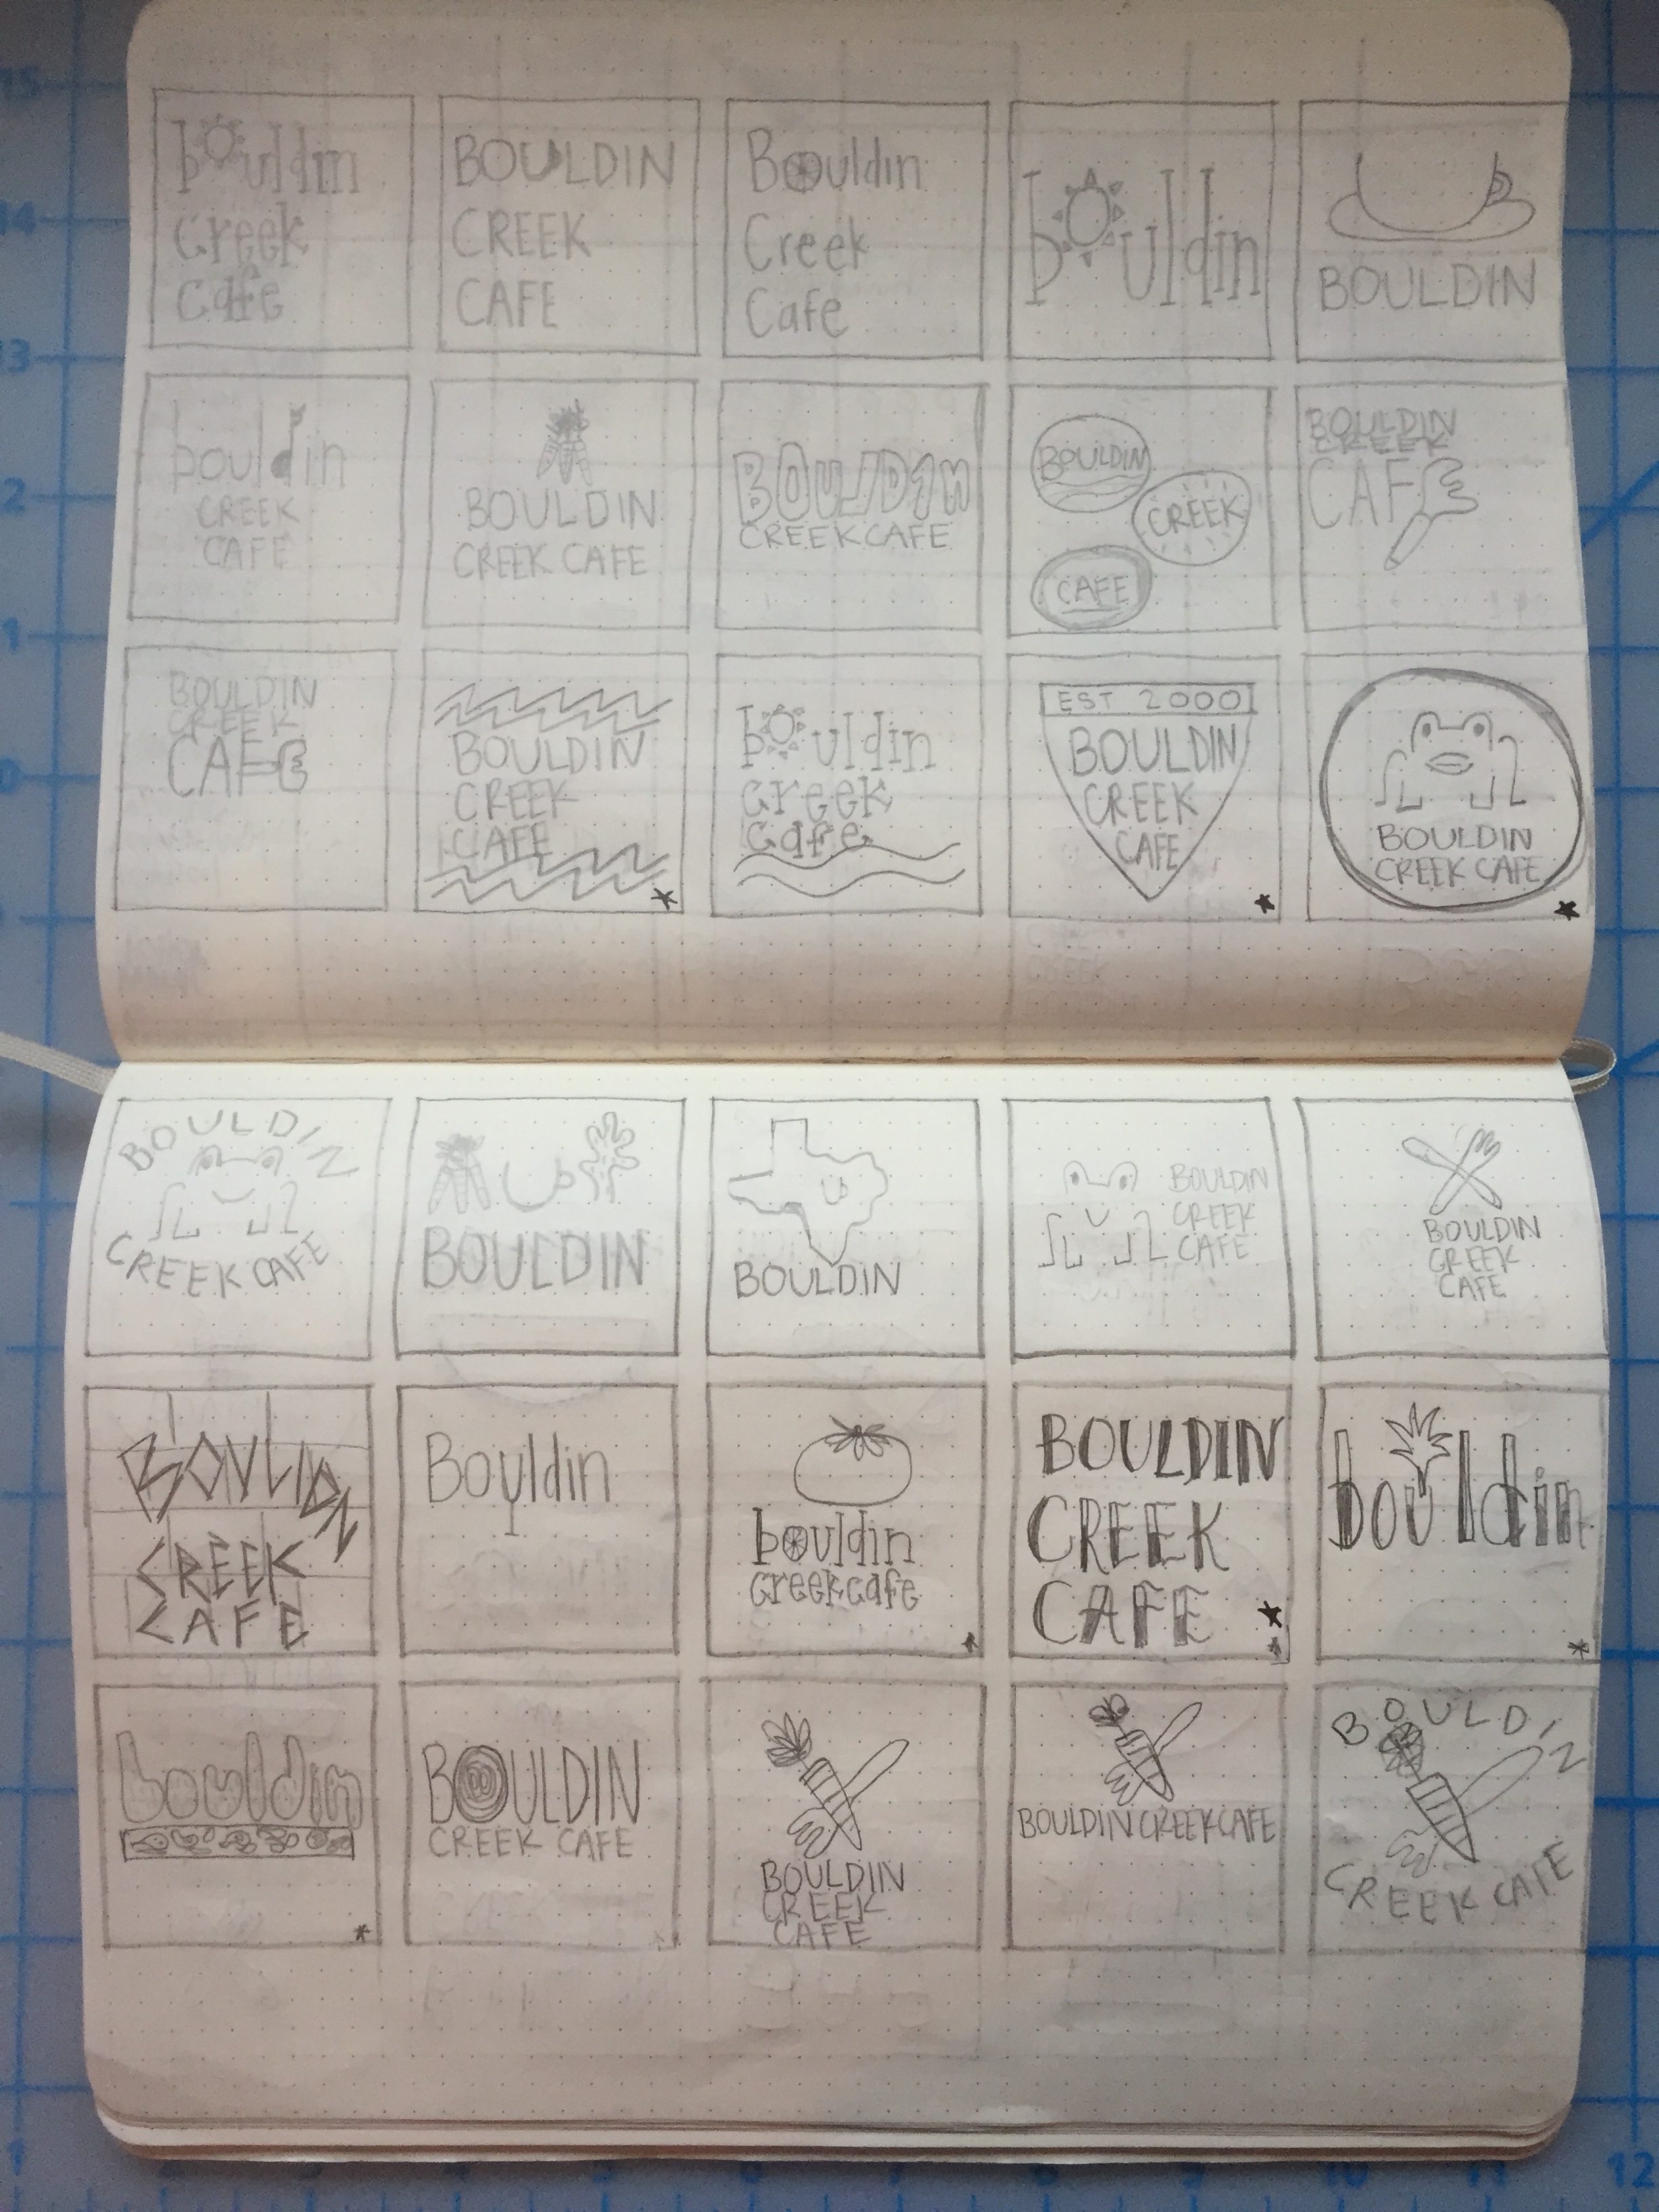 bouldin
creek
cafe
BOULDIN
CREEK
CAFE
Bouldin
Creek
Cafe
bouldin
BOULDIN
bouldin
CREEK
CAFE
BOULDIN
CREEK CAFE
BOULDIN
CREEK CAFE
BOULDIN
CREEK
CAFE
BOULDIN
CREEK
CAFE
BOULDIN
CREEK
CAFE
BOULDIN
CREEK
CAFE
bouldin
creek
cafe
EST 2000
BOULDIN
CREEK
CAFE
BOULDIN
CREEK CAFE
BOULDIN
CREEK CAFE
BOULDIN
BOULDIN
BOULDIN
CREEK
CAFE
BOULDIN
CREEK
CAFE
BOULDIN
CREEK
CAFE
Bouldin
bouldin
creek cafe
BOULDIN
CREEK
CAFE
bouldin
bouldin
BOULDIN
CREEK CAFE
BOULDIN
CREEK
CAFE
BOULDIN CREEK CAFE
BOULDIN
CREEK CAFE
15
14
13
12